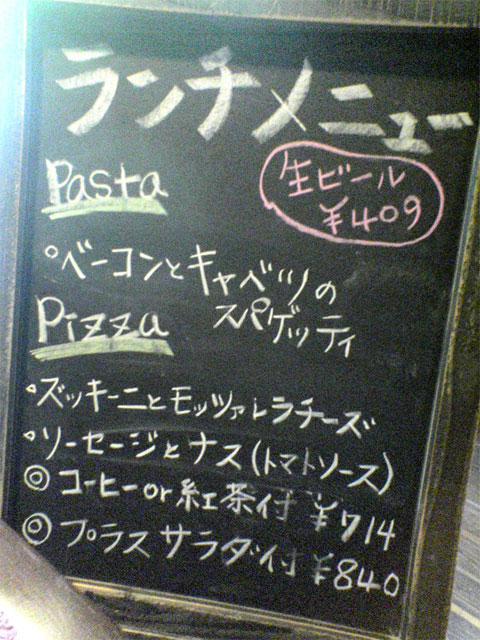 ランチメニュー
Pasta
生ビール
¥409
○ベーコンとキャベツの
スパゲッティ
Pizza
○ズッキーニとモッツァレラチーズ
○ソーセージとナス(トマトソース)
◎コーヒーor紅茶付 ¥714
◎プラスサラダ付 ¥840